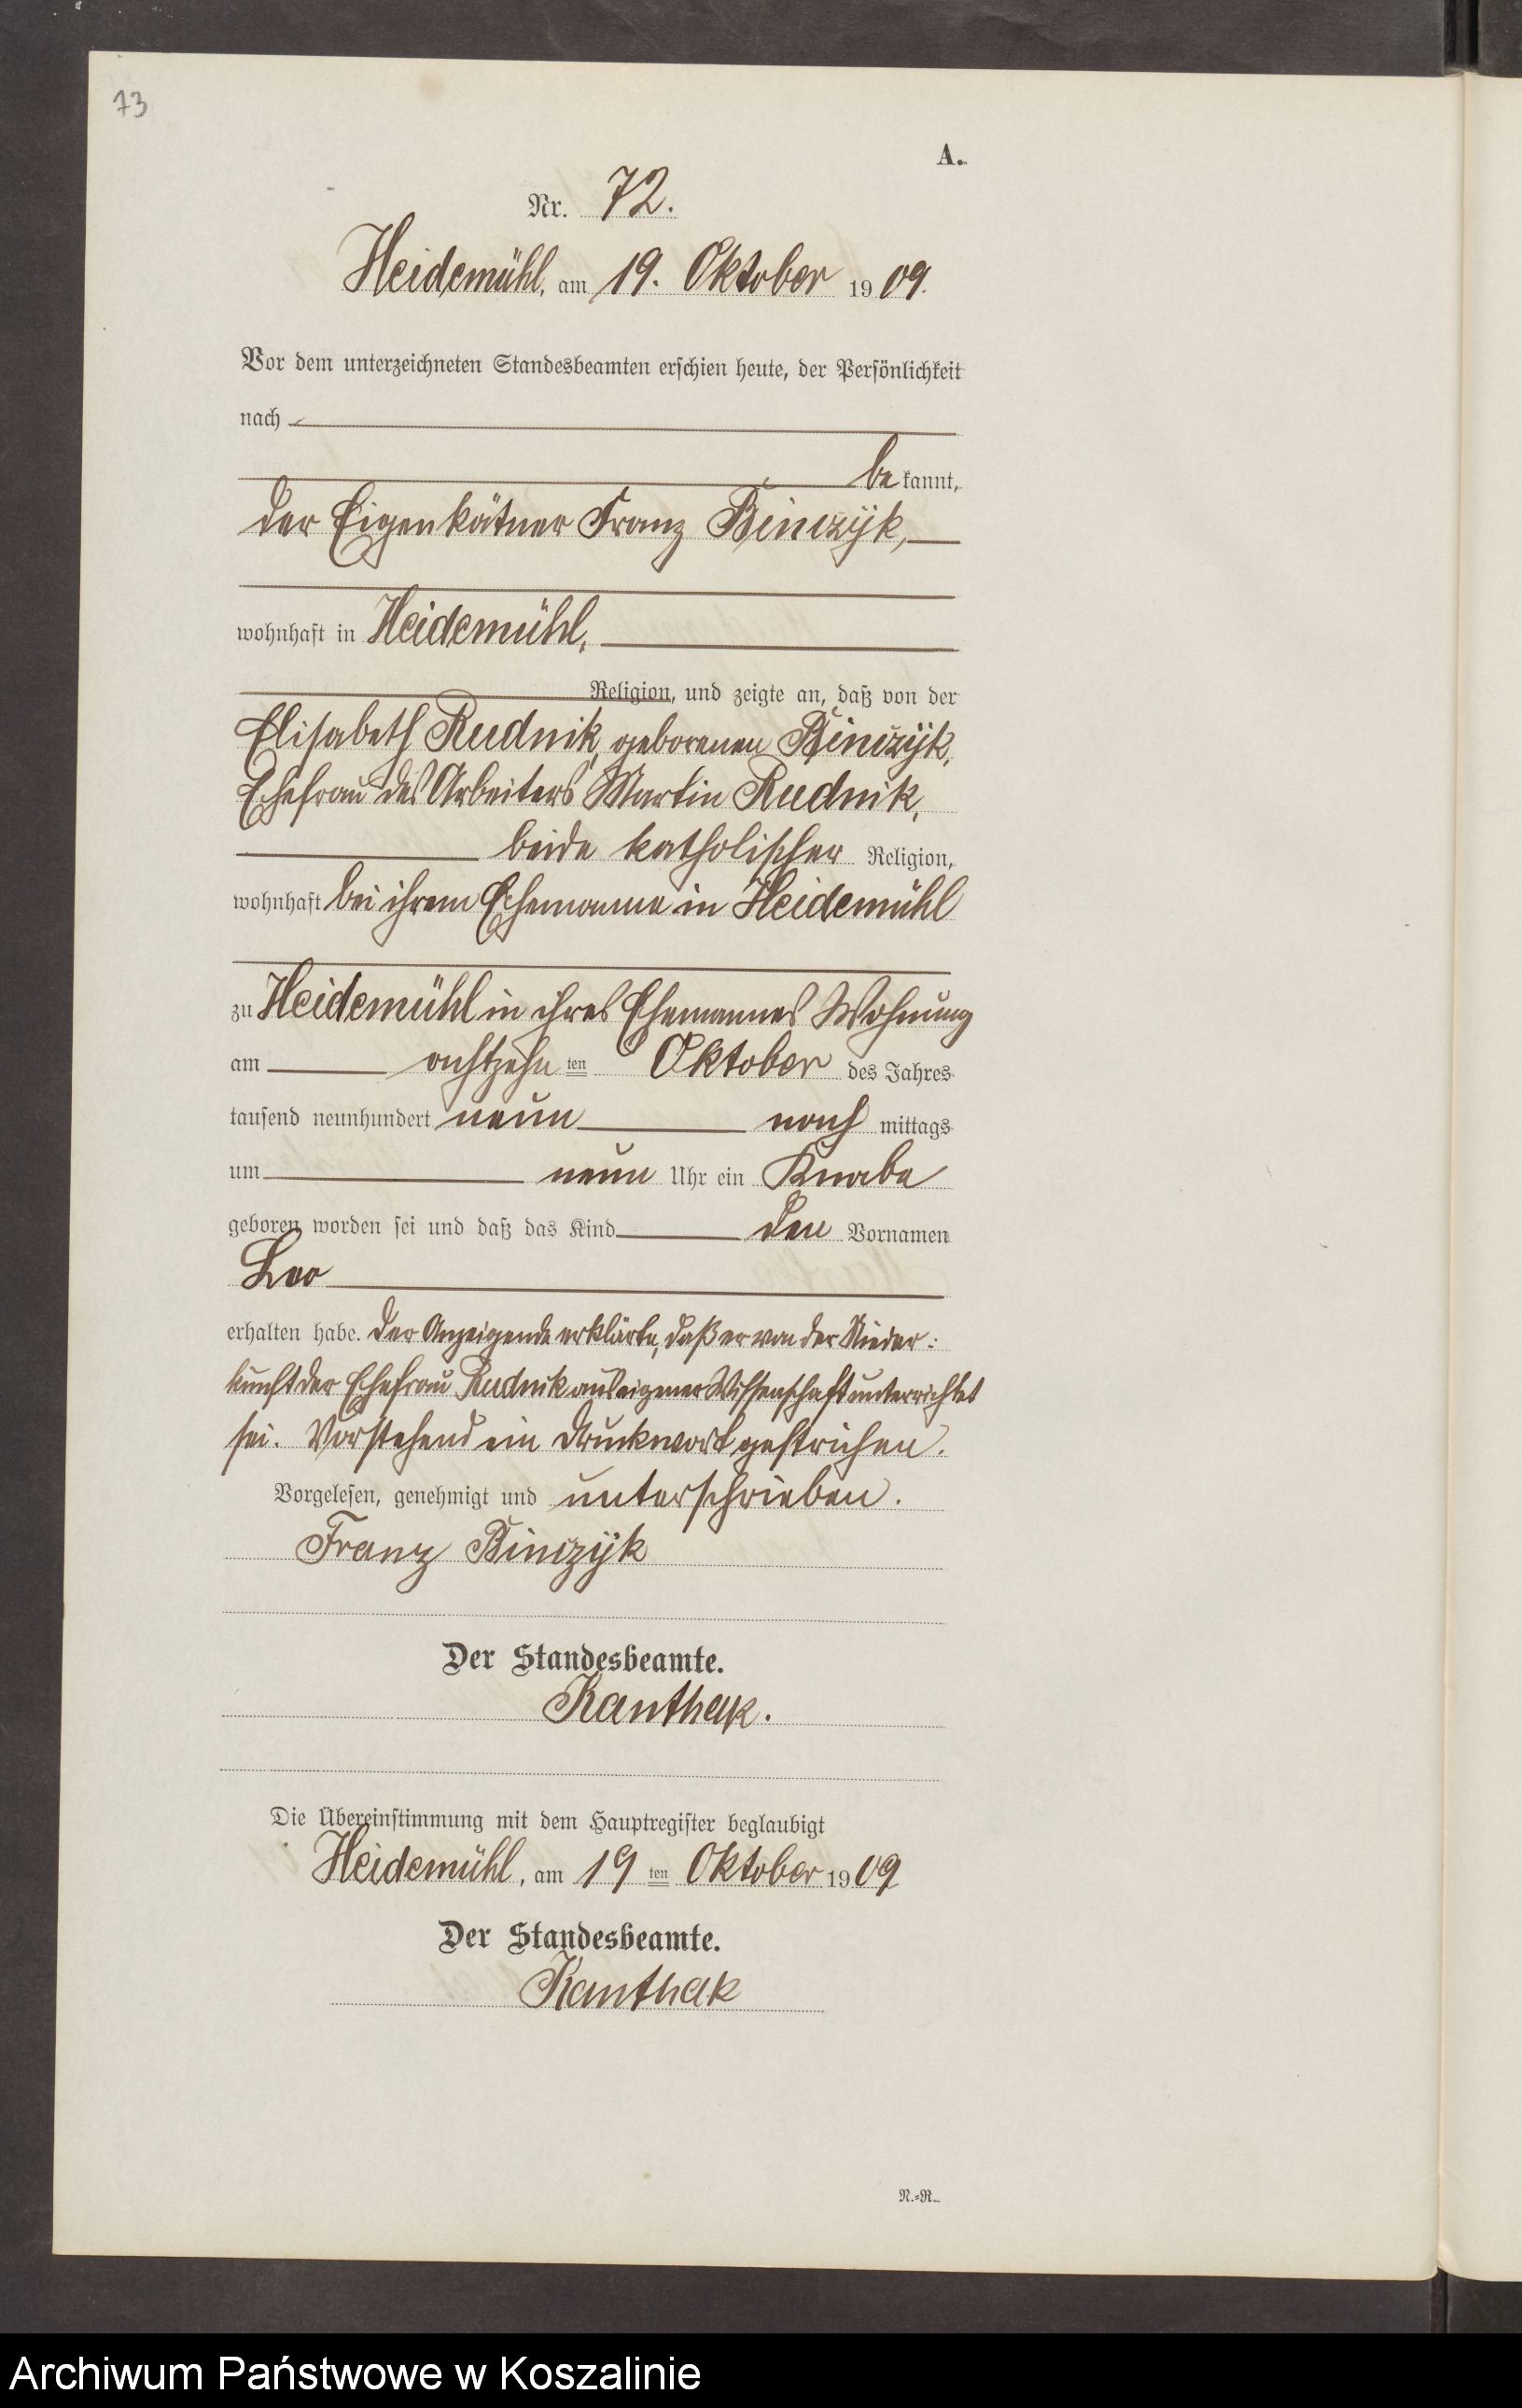 73
A.
Nr. 72.
Heidemühl, am 19. Oktober 1909.
Vor dem unterzeichneten Standesbeamten erschien heute, der Persönlichkeit
nach
be kannt,
der Eigenkätner Franz Binczyk,
wohnhaft in Heidemühl,
Religion, und zeigte an, daß von der
Elisabeth Rudnik, geborenen Binczyk,
Ehefrau des Arbeiters Martin Rudnik,
beide katholischer Religion,
wohnhaft bei ihrem Ehemanne in Heidemühl
zu Heidemühl in ihres Ehemannes Wohnung
am achtzehn ten Oktober des Jahres
tausend neunhundert neun nach mittags
um neun Uhr ein Knabe
geboren worden sei und daß das Kind den Vornamen
Leo
erhalten habe. Der Anzeigende erklärte, daß er von der Nieder:
kunft der Ehefrau Rudnik aus eigener Wissenschaft unterrichtet
sei. Vorstehend ein Druckwort gestrichen.
Vorgelesen, genehmigt und unterschrieben.
Franz Binczyk
Der Standesbeamte.
Kanthak.
Die Übereinstimmung mit dem Hauptregister beglaubigt
Heidemühl, am 19 ten Oktober 1909
Der Standesbeamte.
Kanthak
N.=R.
Archiwum Państwowe w Koszalinie